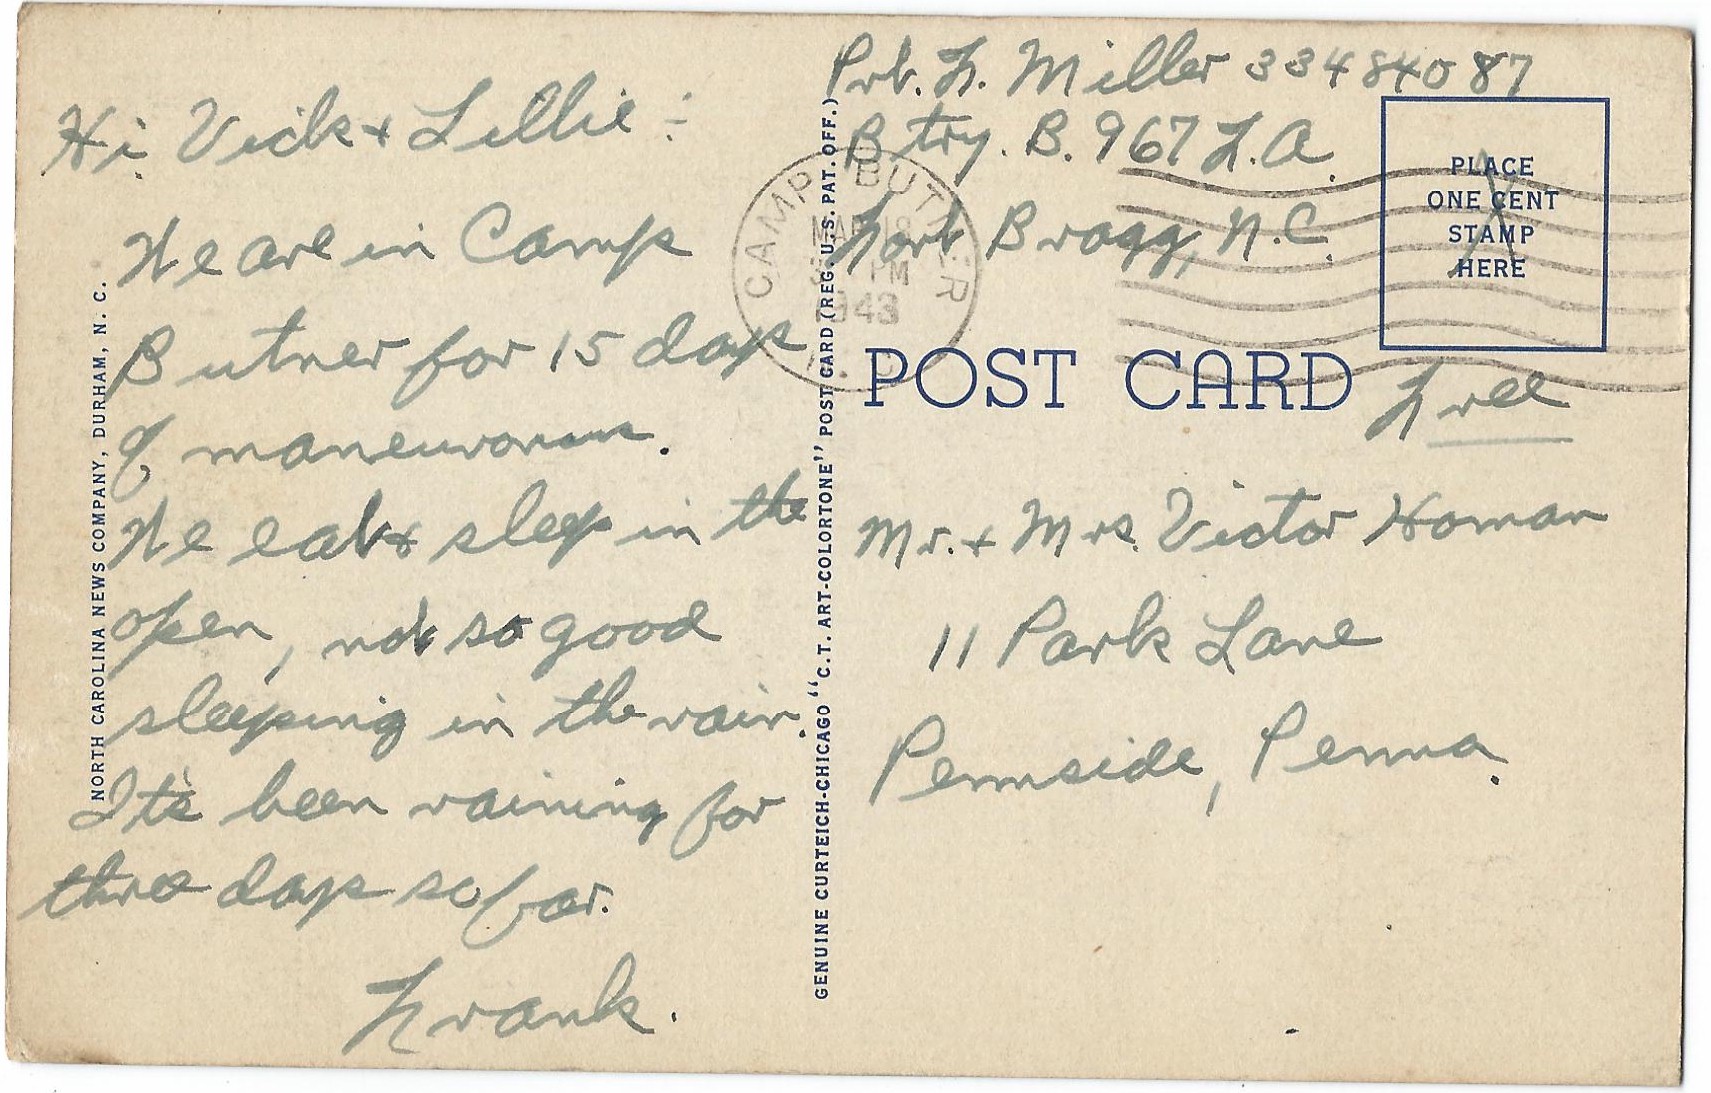 Hi Vick & Lillie :
We are in Camp
Butner for 15 days
of
We eat & sleep in the
open, not so good
sleeping in the rain.
It's been raining for
three days so far.
Frank.
NORTH CAROLINA NEWS COMPANY, DURHAM, N. C.
GENUINE CURTEICH-CHICAGO "C.T. ART-COLORTONE" POST CARD (REG. U.S. PAT. OFF.)
Pvt. F. Miller 33484087
Btry. B. 967 F.A.
Fort Bragg, N.C.
CAMP BUTNER
MAR 18
PM
1943
N. C.
PLACE
ONE CENT
STAMP
HERE
POST CARD
Free
Mr. & Mrs. Victor Homan
11 Park Lane
Pennside, Penna.